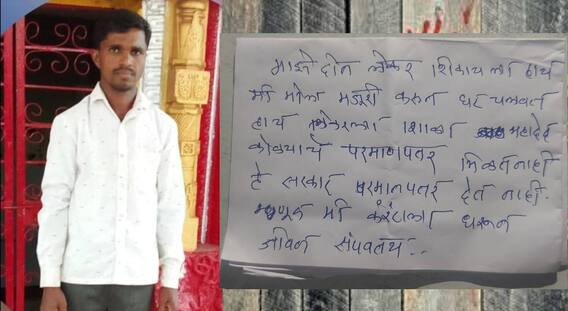 माझे दोन लेकर शिकाय ला हायं
मी मोला मजुरी करुन घर चलवतं
हायं लेकरला शाळा महादेव
कोळ्याचे परमाणपतर मिळत नाही
हे सरकार परमानपतर देत नाही.
म्हणून मी करंटला धरून
जीवन संपवतय..